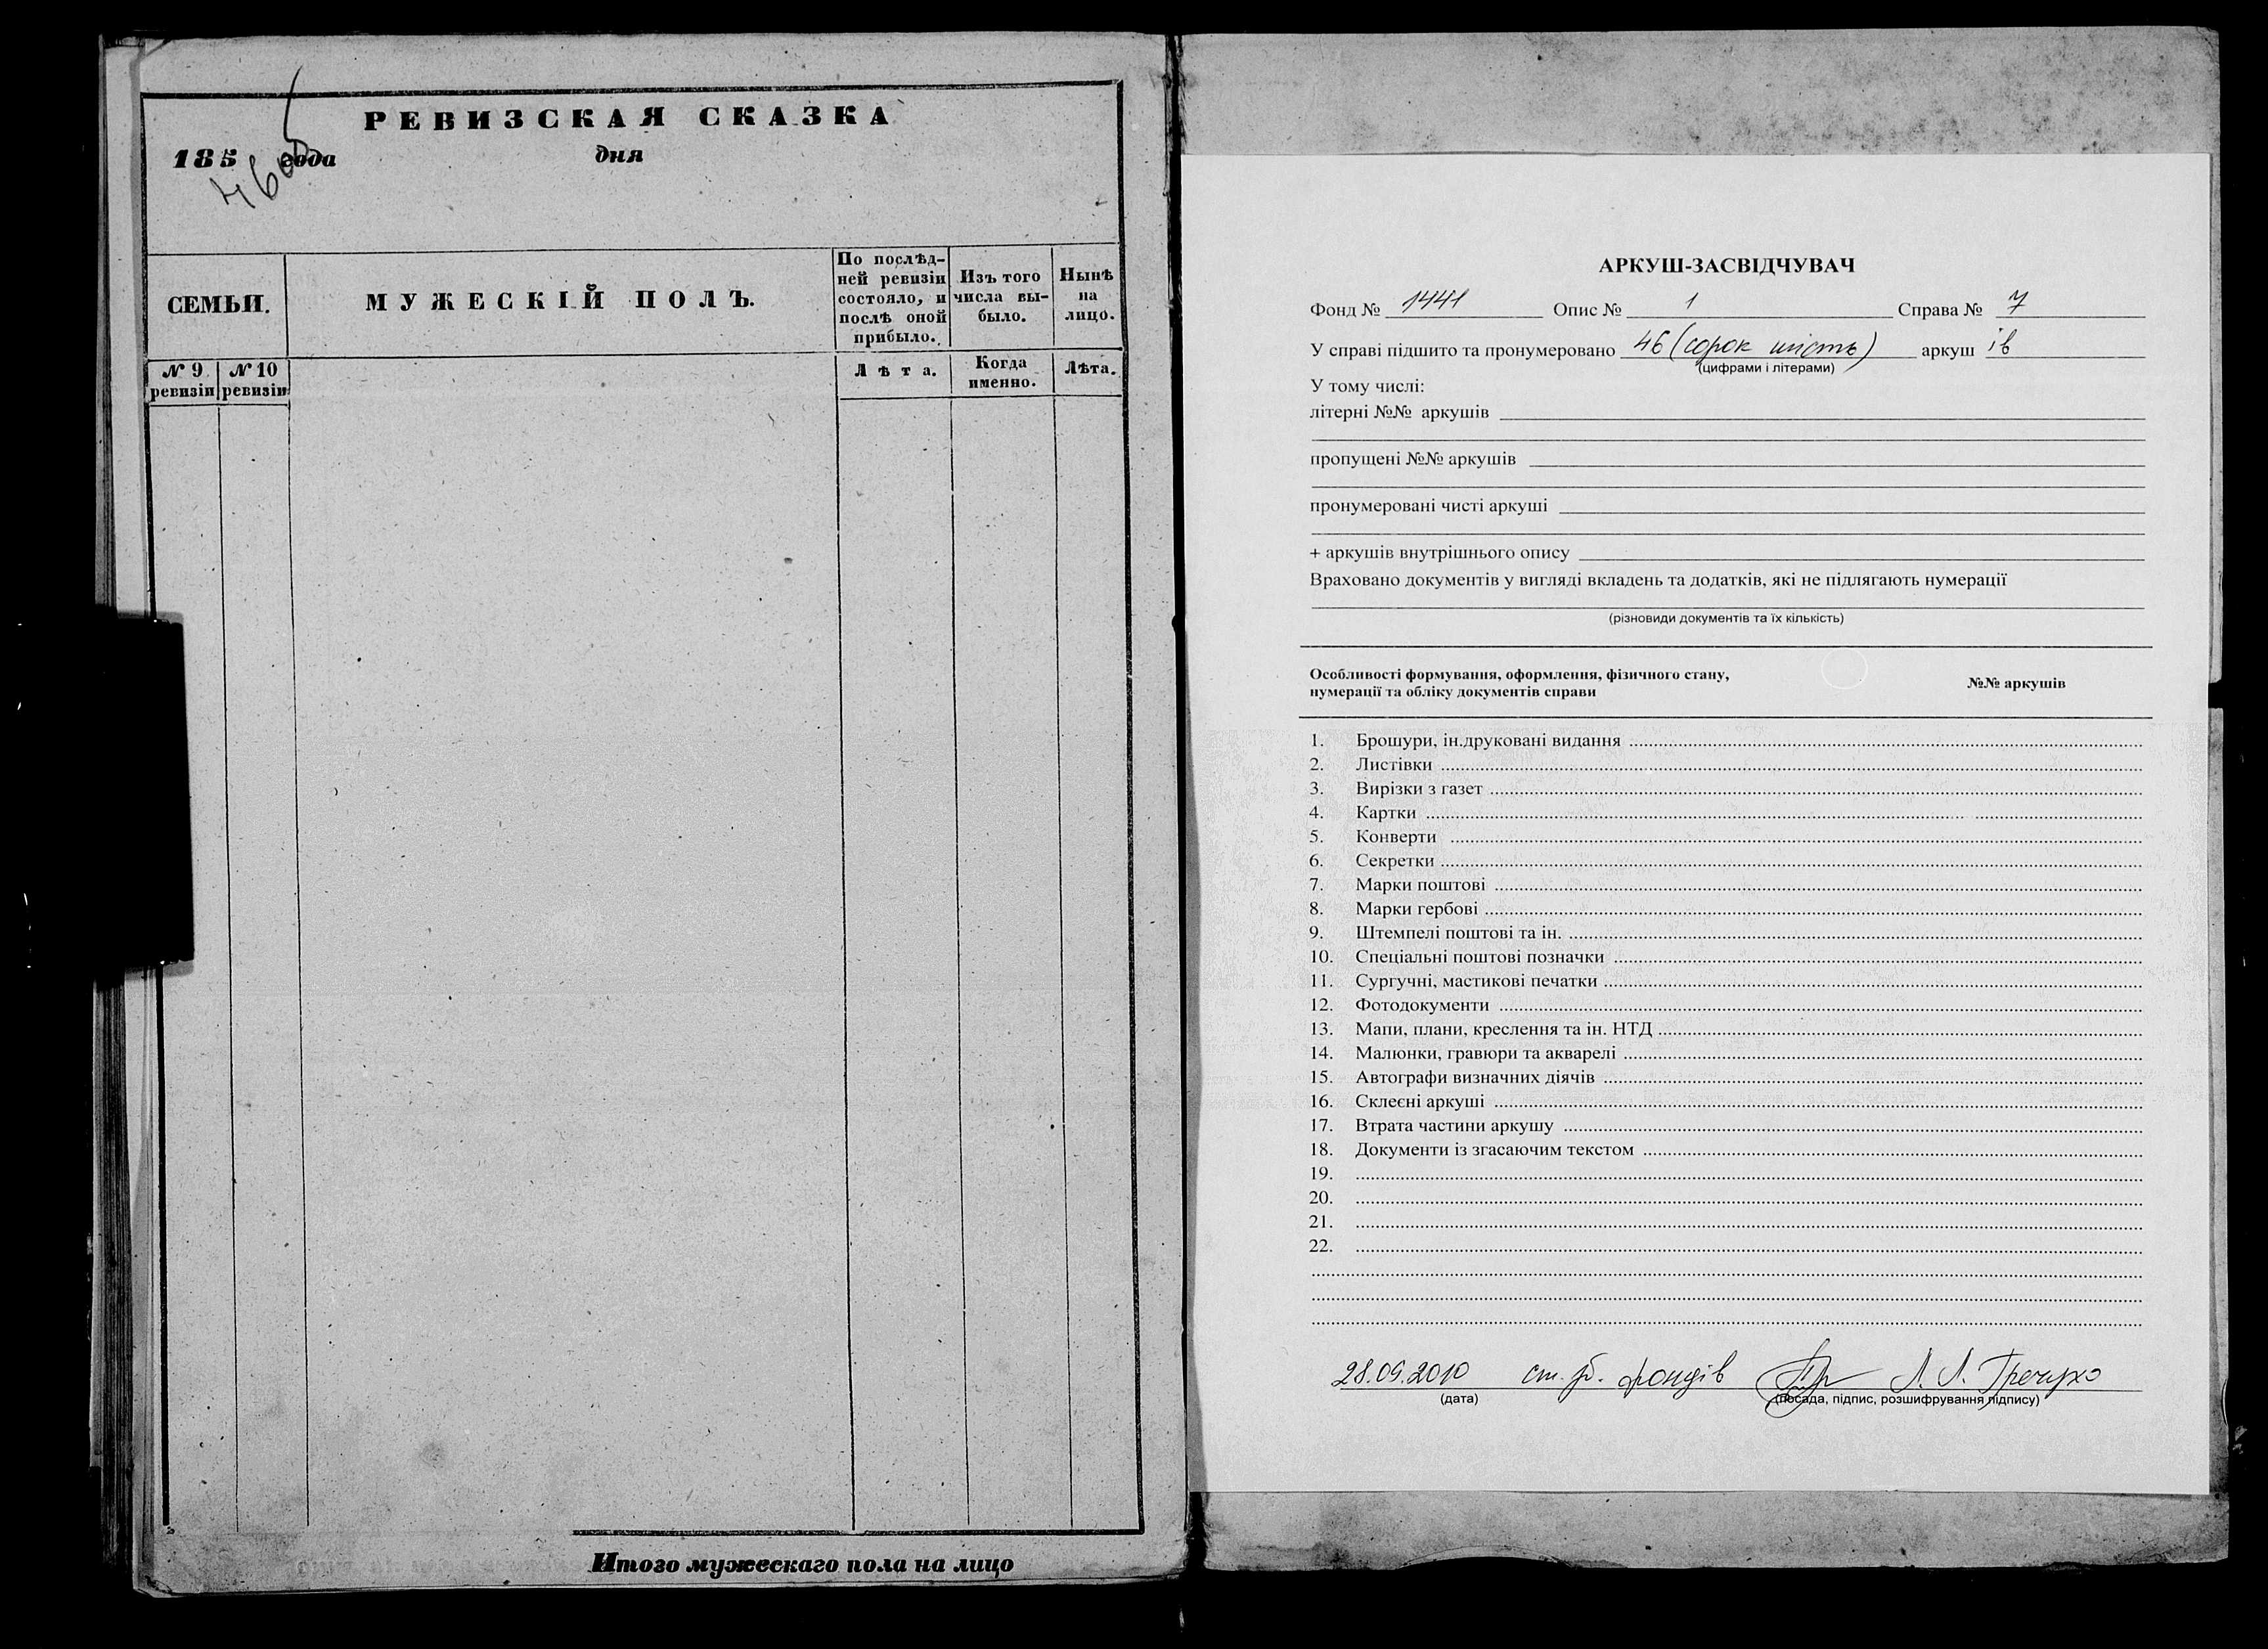 РЕВИЗСКАЯ СКАЗКА
185 года дня
46 об
СЕМЬИ.
МУЖЕСКІЙ ПОЛЪ.
По послѣд-
ней ревизіи
состояло, и
послѣ оной
прибыло.
Изъ того
числа вы-
было.
Нынѣ
на
лицо.
№ 9
ревизіи
№ 10
ревизіи
Лѣта.
Когда
именно.
Лѣта.
Итого мужескаго пола на лицо
АРКУШ-ЗАСВІДЧУВАЧ
Фонд № 1441 Опис № 1 Справа № 7
У справі підшито та пронумеровано 46 (сорок шість) аркуш ів
(цифрами і літерами)
У тому числі:
літерні №№ аркушів
пропущені №№ аркушів
пронумеровані чисті аркуші
+ аркушів внутрішнього опису
Враховано документів у вигляді вкладень та додатків, які не підлягають нумерації
(різновиди документів та їх кількість)
Особливості формування, оформлення, фізичного стану,
нумерації та обліку документів справи
№№ аркушів
1. Брошури, ін.друковані видання
2. Листівки
3. Вирізки з газет
4. Картки
5. Конверти
6. Секретки
7. Марки поштові
8. Марки гербові
9. Штемпелі поштові та ін.
10. Спеціальні поштові позначки
11. Сургучні, мастикові печатки
12. Фотодокументи
13. Мапи, плани, креслення та ін. НТД
14. Малюнки, гравюри та акварелі
15. Автографи визначних діячів
16. Склеєні аркуші
17. Втрата частини аркушу
18. Документи із згасаючим текстом
19.
20.
21.
22.
28.09.2010 ст. зб. фондів Л. Л. Гречухо
(дата) (посада, підпис, розшифрування підпису)